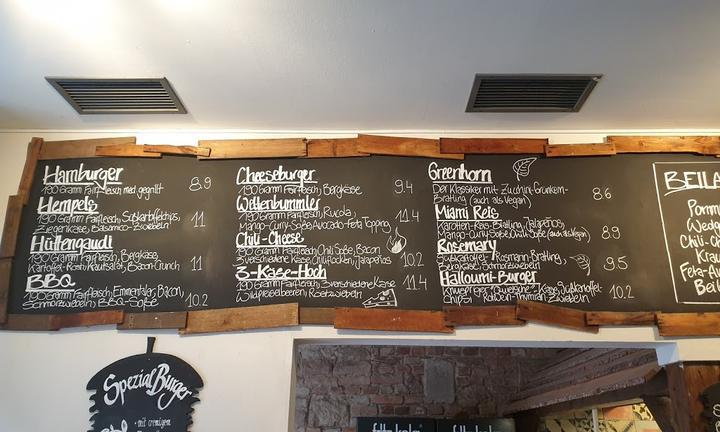 Hamburger
190 Gramm Fairfleisch med gegrillt 8.9
Hempels
190 Gramm Fairfleisch, Süßkartoffelchips,
Ziegenkäse, Balsamico-Zwiebeln 11
Hüttengaudi
190 Gramm Fairfleisch, Bergkäse,
Kartoffel-Rösti, Krautsalat, Bacon Crunch 11
BBQ
190 Gramm Fairfleisch, Emmentaler, Bacon,
Schmorzwiebeln, BBQ-Soße 10.2
Cheeseburger
190 Gramm Fairfleisch, Bergkäse 9.4
Weltenbummler
190 Gramm Fairfleisch, Rucola,
Mango-Curry-Soße, Avocado-Feta Topping 11.4
Chili-Cheese
190 Gramm Fairfleisch, Chili Soße, Bacon
3 verschiedene Käse, Chiliflocken, Jalapeños 10.2
3-Käse-Hoch
190 Gramm Fairfleisch, 3 verschiedene Käse
Wildpreiselbeeren, Röstzwiebeln 11.4
Greenhorn
Der Klassiker mit Zucchini-Grünkern-
Bratling (auch als Vegan) 8.6
Miami Reis
Karotten-Reis-Bratling, Jalapeños,
Mango-Curry-Soße, Chili Soße (auch als Vegan) 8.9
Rosemary
Süßkartoffel-Rosmarin-Bratling,
Bergkäse, Schmorzwiebeln 9.5
Halloumi-Burger
Knuspriger Quietsche-Käse, Süßkartoffel-
Chips, Thymian Zwiebeln 10.2
BEILA
Pomm
Wedg
Chili-C
Krau
Feta-A
Bei
Spezial Burger
• mit cremigem
fritz-kola
fritz-kola